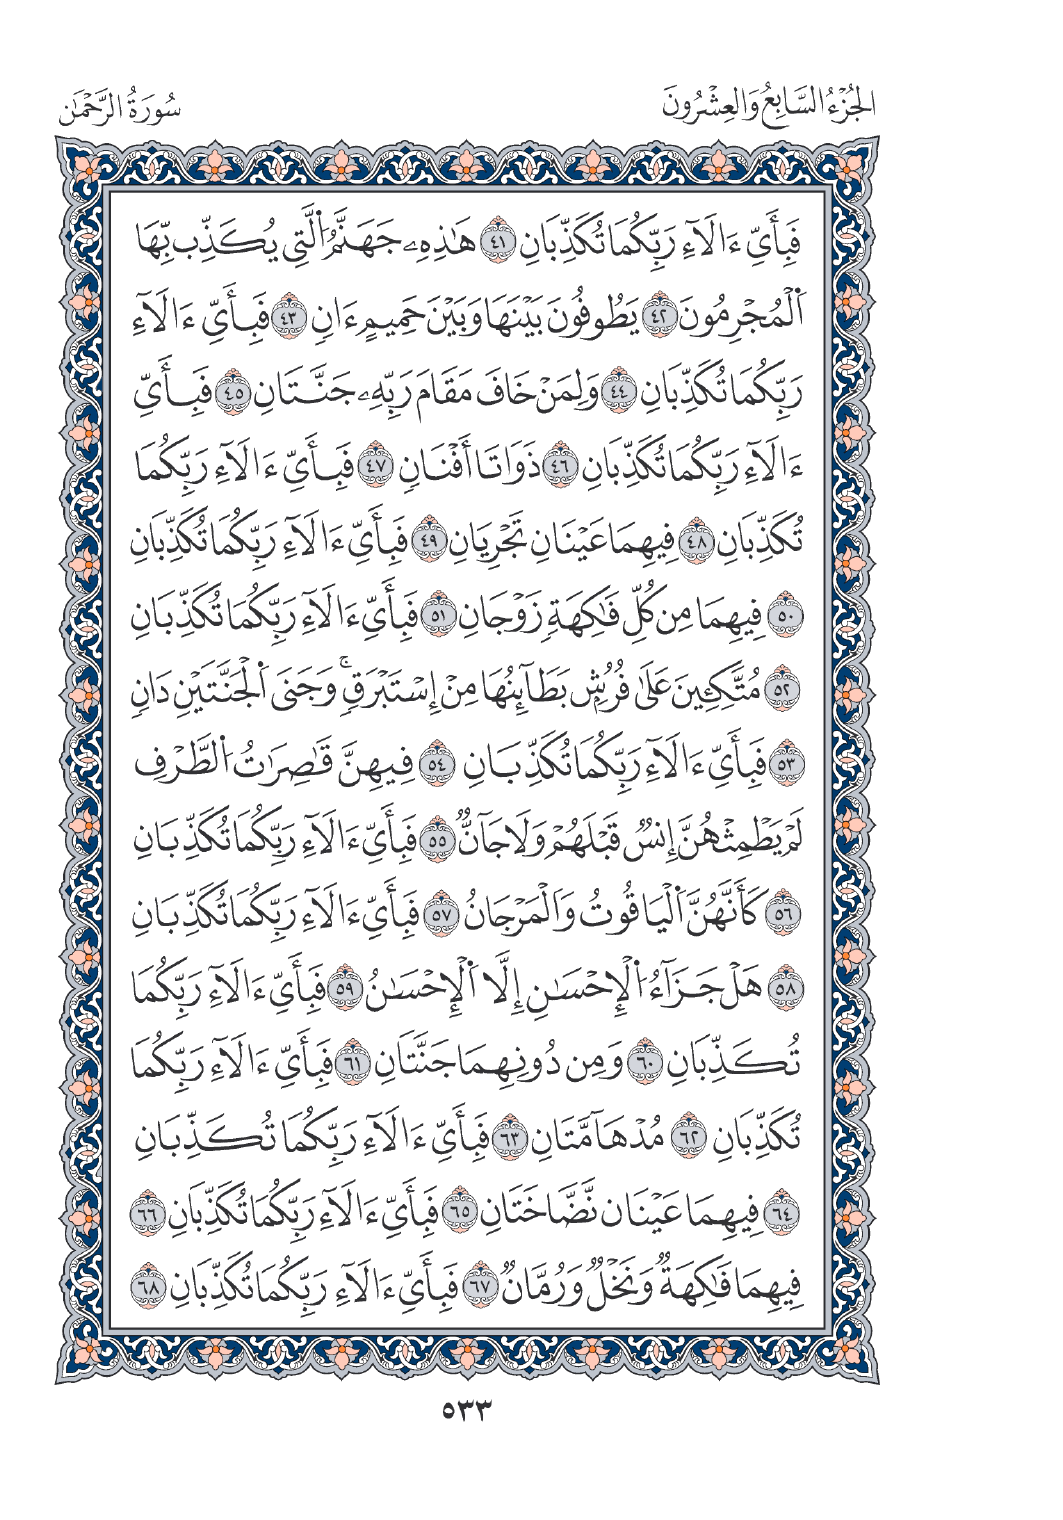 الجُزْءُ السَّابِعُ وَالعِشْرُونَ
سُورَةُ الرَّحْمَٰن
فَبِأَيِّ ءَالَآءِ رَبِّكُمَا تُكَذِّبَانِ ٤١ هَٰذِهِۦ جَهَنَّمُ ٱلَّتِي يُكَذِّبُ بِهَا
ٱلْمُجْرِمُونَ ٤٢ يَطُوفُونَ بَيْنَهَا وَبَيْنَ حَمِيمٍ ءَانٍ ٤٣ فَبِأَيِّ ءَالَآءِ
رَبِّكُمَا تُكَذِّبَانِ ٤٤ وَلِمَنْ خَافَ مَقَامَ رَبِّهِۦ جَنَّتَانِ ٤٥ فَبِأَيِّ
ءَالَآءِ رَبِّكُمَا تُكَذِّبَانِ ٤٦ ذَوَاتَآ أَفْنَانٍ ٤٧ فَبِأَيِّ ءَالَآءِ رَبِّكُمَا
تُكَذِّبَانِ ٤٨ فِيهِمَا عَيْنَانِ تَجْرِيَانِ ٤٩ فَبِأَيِّ ءَالَآءِ رَبِّكُمَا تُكَذِّبَانِ
٥٠ فِيهِمَا مِن كُلِّ فَٰكِهَةٍ زَوْجَانِ ٥١ فَبِأَيِّ ءَالَآءِ رَبِّكُمَا تُكَذِّبَانِ
٥٢ مُتَّكِـِٔينَ عَلَىٰ فُرُشٍۭ بَطَآئِنُهَا مِنْ إِسْتَبْرَقٍۚ وَجَنَى ٱلْجَنَّتَيْنِ دَانٍ
٥٣ فَبِأَيِّ ءَالَآءِ رَبِّكُمَا تُكَذِّبَانِ ٥٤ فِيهِنَّ قَٰصِرَٰتُ ٱلطَّرْفِ
لَمْ يَطْمِثْهُنَّ إِنسٌ قَبْلَهُمْ وَلَا جَآنٌّ ٥٥ فَبِأَيِّ ءَالَآءِ رَبِّكُمَا تُكَذِّبَانِ
٥٦ كَأَنَّهُنَّ ٱلْيَاقُوتُ وَٱلْمَرْجَانُ ٥٧ فَبِأَيِّ ءَالَآءِ رَبِّكُمَا تُكَذِّبَانِ
٥٨ هَلْ جَزَآءُ ٱلْإِحْسَٰنِ إِلَّا ٱلْإِحْسَٰنُ ٥٩ فَبِأَيِّ ءَالَآءِ رَبِّكُمَا
تُكَذِّبَانِ ٦٠ وَمِن دُونِهِمَا جَنَّتَانِ ٦١ فَبِأَيِّ ءَالَآءِ رَبِّكُمَا
تُكَذِّبَانِ ٦٢ مُدْهَآمَّتَانِ ٦٣ فَبِأَيِّ ءَالَآءِ رَبِّكُمَا تُكَذِّبَانِ
٦٤ فِيهِمَا عَيْنَانِ نَضَّاخَتَانِ ٦٥ فَبِأَيِّ ءَالَآءِ رَبِّكُمَا تُكَذِّبَانِ ٦٦
فِيهِمَا فَٰكِهَةٌ وَنَخْلٌ وَرُمَّانٌ ٦٧ فَبِأَيِّ ءَالَآءِ رَبِّكُمَا تُكَذِّبَانِ ٦٨
٥٣٣